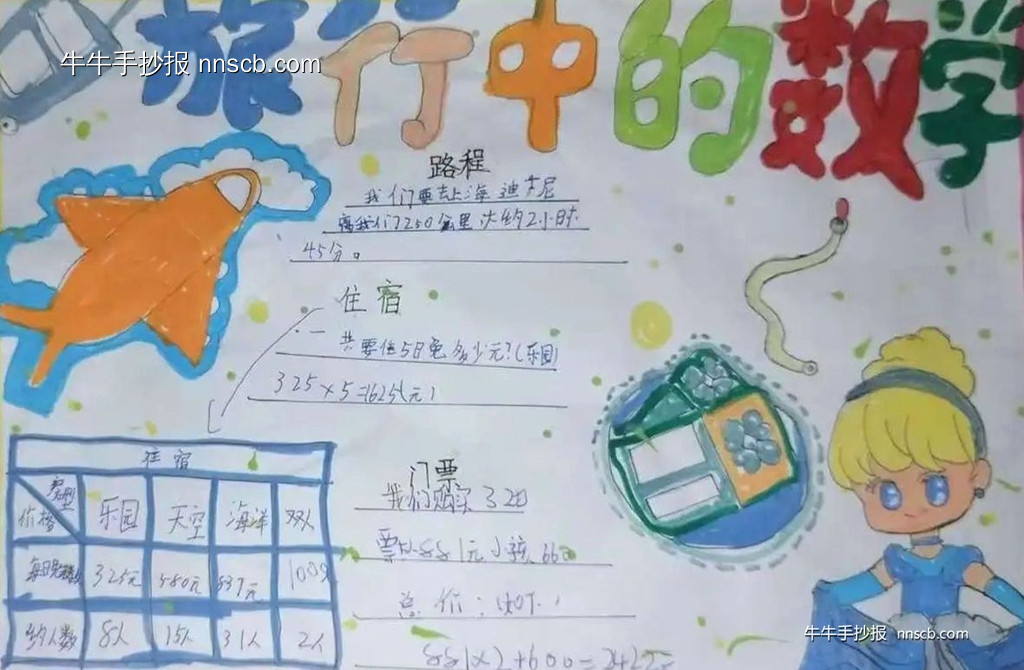 旅行中的数学
牛牛手抄报 nnscb.com
路程
我们要去上海迪士尼
离我们1250公里大约2小时
45分。
住宿
一共要住5日 多少元?(乐园)
325×5=1625(元)
住宿
类型
价格
乐园 天空 海洋 双人
325元 580元 837元 100元
约人数 8人 15人 31人 2人
门票
我们购买3
票 881元 小孩660
总价:如下:
881×2+600=2422元
牛牛手抄报 nnscb.com